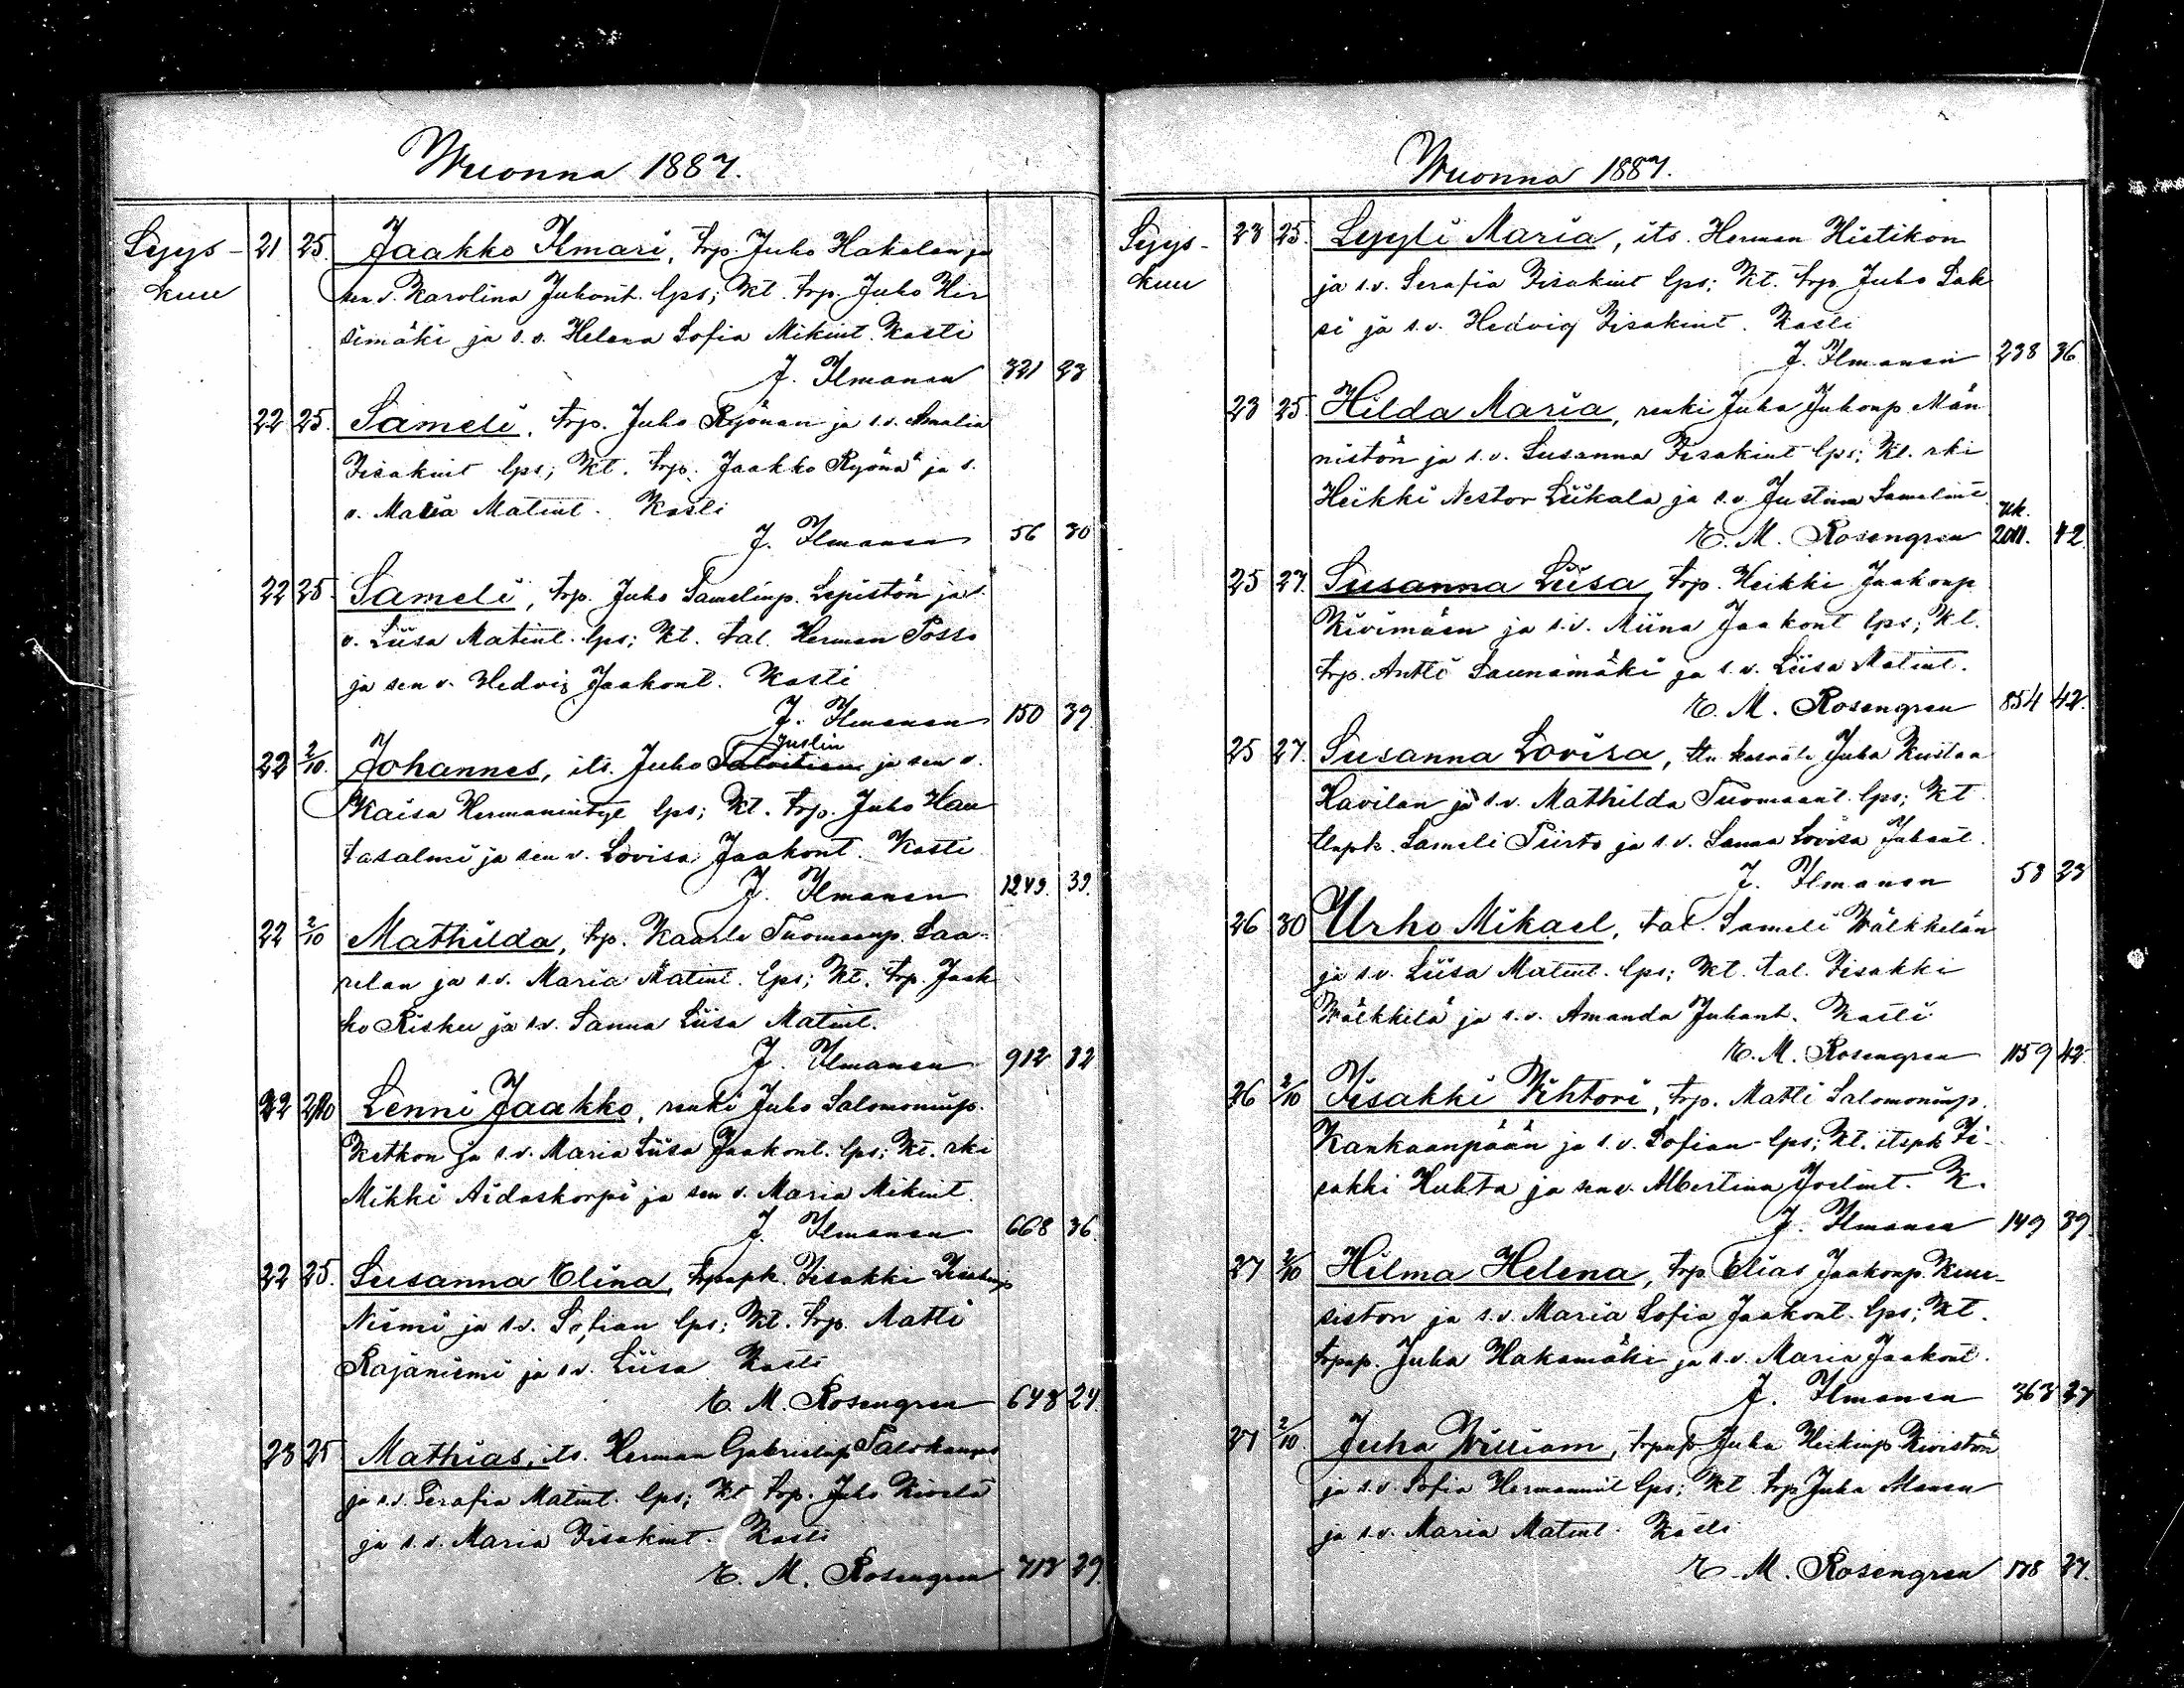 Wuonna 1887.
Syys- 21 25. Jaakko Ilmari, trp. Juho Hakalan ja
kuu sen v. Karolina Juhont. lps; Kt. trp. Juho Hir
simäki ja s. v. Helena Sofia Mikint. Kasti
J. Ilmanen 321 23
22 25. Sameli, trp. Juho Ryönän ja s.v. Amalia
Iisakint lps; Kt. trp. Jaakko Ryönä ja s.
v. Maria Matint. Kasti
J. Ilmanen 56 30
22 25. Sameli, trp. Juho Samelinp. Lepistön ja s.
v. Liisa Matint. lps; Kt. tal. Herman Posso
ja sen v. Hedvig Jaakont. Kasti
J. Ilmanen 150 39.
Juslin
22 2/10. Johannes, its. Juho ja sen v.
Kaisa Hermanintyt lps; Kt. trp. Juho Hau
tasalmi ja sen v. Lovisa Jaakont. Kasti
J. Ilmanen 1249. 39.
22 2/10 Mathilda, trp. Kaarle Tuomaanp. Saa-
relan ja s.v. Maria Matint. lps; Kt. trp. Jaak
ko Risku ja s.v. Sanna Liisa Matint.
J. Ilmanen 912 32
22 2/10 Lenni Jaakko, renki Juho Salomoninp.
Ketkon ja s.v. Maria Liisa Jaakont. lps; Kt. rki
Mikki Aidaskorpi ja sen v. Maria Mikint.
J. Ilmanen 668 36.
22 25. Susanna Elina, trpnpk. Iisakki Iisakinp
Niemi ja s.v. Sofian lps; Kt. trp. Matti
Rajaniemi ja s.v. Liisa Kasti
E. M. Rosengren 648 24.
23 25 Mathias, its. Herman Gabrielinp
ja s.v. Serafia Matint. lps; Kt trp. Juho Kivelä
ja s.v. Maria Iisakint. Kasti
E. M. Rosengren 713 29.
Wuonna 1887.
Syys- 23 25. Lyyli Maria, its. Herman Histikon
kuu ja s.v. Serafia Iisakint lps; Kt. trp. Juho Lak
si ja s.v. Hedvig Iisakint. Kasti
J. Ilmanen 238 36.
23 25. Hilda Maria, renki Juha Juhonp Män
nistön ja s.v. Susanna Iisakint lps; Kt. rki
Heikki Nestor Liikala ja s.v. Justina Samelint
Uk.
E. M. Rosengren 2011. 42.
25 27. Susanna Liisa, trp. Heikki Jaakonp
Kivimäen ja s.v. Miina Jaakont lps; Kt.
trp. Antti Saunamäki ja s.v. Liisa Matint.
E. M. Rosengren 854 42.
25 27. Susanna Lovisa, Juha Kustaa
Havilan ja s.v. Mathilda Tuomaant. lps; Kt.
Sameli Piirto ja s.v. Sanna Lovisa Juhont.
J. Ilmanen 58 23
26 30 Urho Mikael, tal. Sameli Wälkkelän
ja s.v. Liisa Matint. lps; Kt. tal. Iisakki
Wälkkilä ja s.v. Amanda Juhont. Kasti
E. M. Rosengren 1159 42.
26 2/10 Iisakki Vihtori, trp. Matti Salomoninp.
Kankaanpään ja s.v. Sofian lps; Kt. itspk Ii-
sakki Huhta ja sen v. Albertina Joelint. K.
J. Ilmanen 149 39.
27 2/10 Hilma Helena, trp. Elias Jaakonp. Kuu-
siston ja s.v. Maria Sofia Jaakont. lps; Kt.
trpnp. Juha Hakamäki ja s.v. Maria Jaakont.
J. Ilmanen 363 37
27 2/10. Juha William, trpnp Juha Heikinp Kiviston
ja s.v. Sofia Hermannint lps; Kt trp Juha Manen
ja s.v. Maria Matint. Kasti
E. M. Rosengren 178 27.